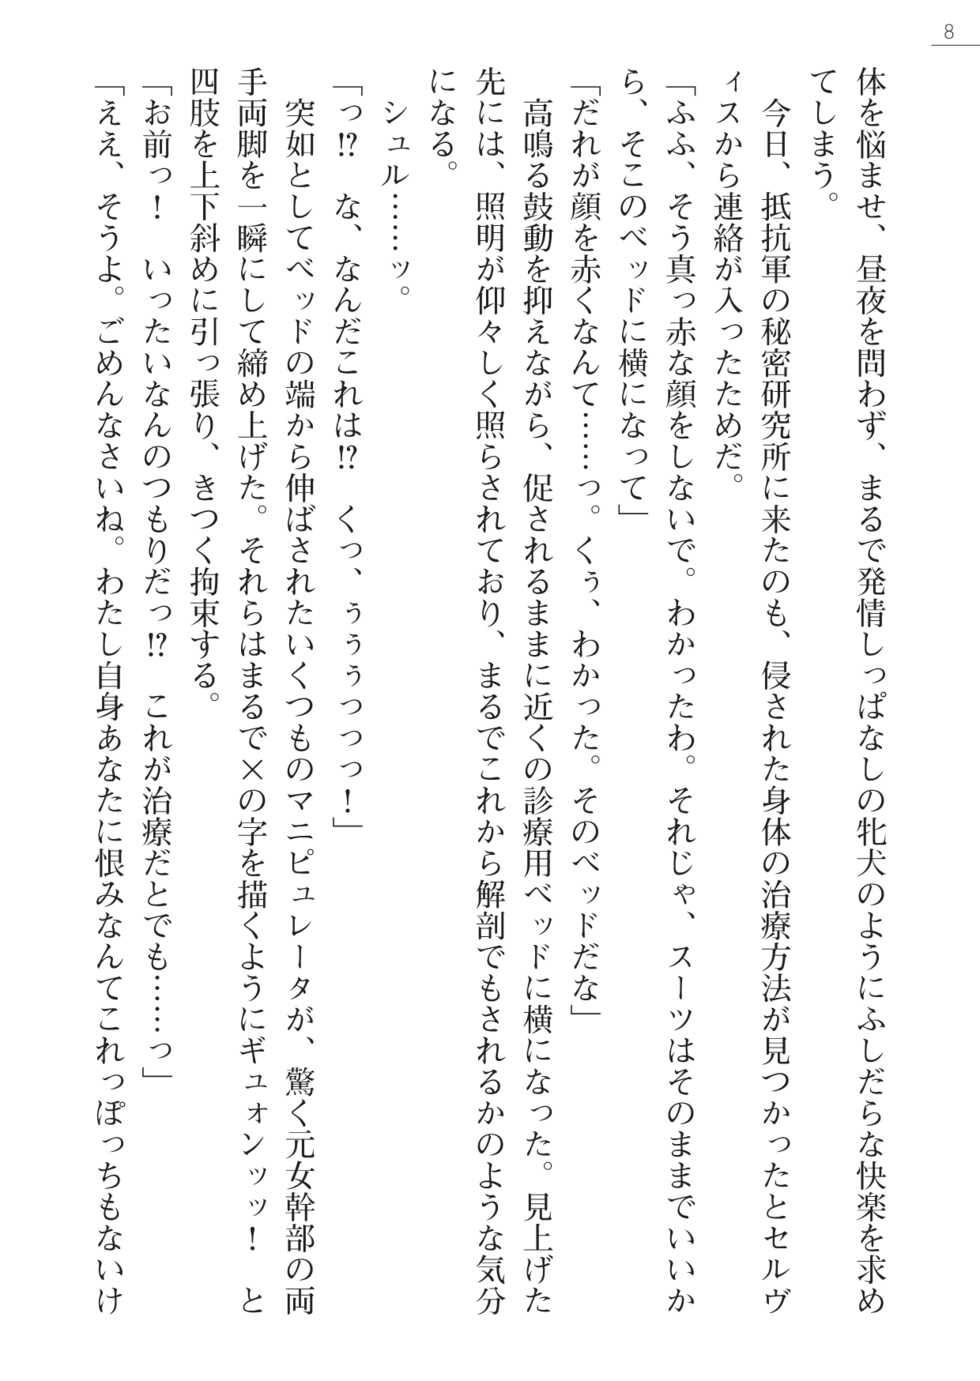 8
体を悩ませ、昼夜を問わず、まるで発情しっぱなしの牝犬のようにふしだらな快楽を求め
てしまう。
　今日、抵抗軍の秘密研究所に来たのも、侵された身体の治療方法が見つかったとセルヴ
ィスから連絡が入ったためだ。
「ふふ、そう真っ赤な顔をしないで。わかったわ。それじゃ、スーツはそのままでいいか
ら、そこのベッドに横になって」
「だれが顔を赤くなんて……っ。くぅ、わかった。そのベッドだな」
　高鳴る鼓動を抑えながら、促されるままに近くの診療用ベッドに横になった。見上げた
先には、照明が仰々しく照らされており、まるでこれから解剖でもされるかのような気分
になる。
　シュル……ッ。
「っ!?　な、なんだこれは!?　くっ、ぅぅぅっっっ！」
　突如としてベッドの端から伸ばされたいくつものマニピュレータが、驚く元女幹部の両
手両脚を一瞬にして締め上げた。それらはまるで×の字を描くようにギュォンッッ！　と
四肢を上下斜めに引っ張り、きつく拘束する。
「お前っ！　いったいなんのつもりだっ!?　これが治療だとでも……っ」
「ええ、そうよ。ごめんなさいね。わたし自身あなたに恨みなんてこれっぽっちもないけ